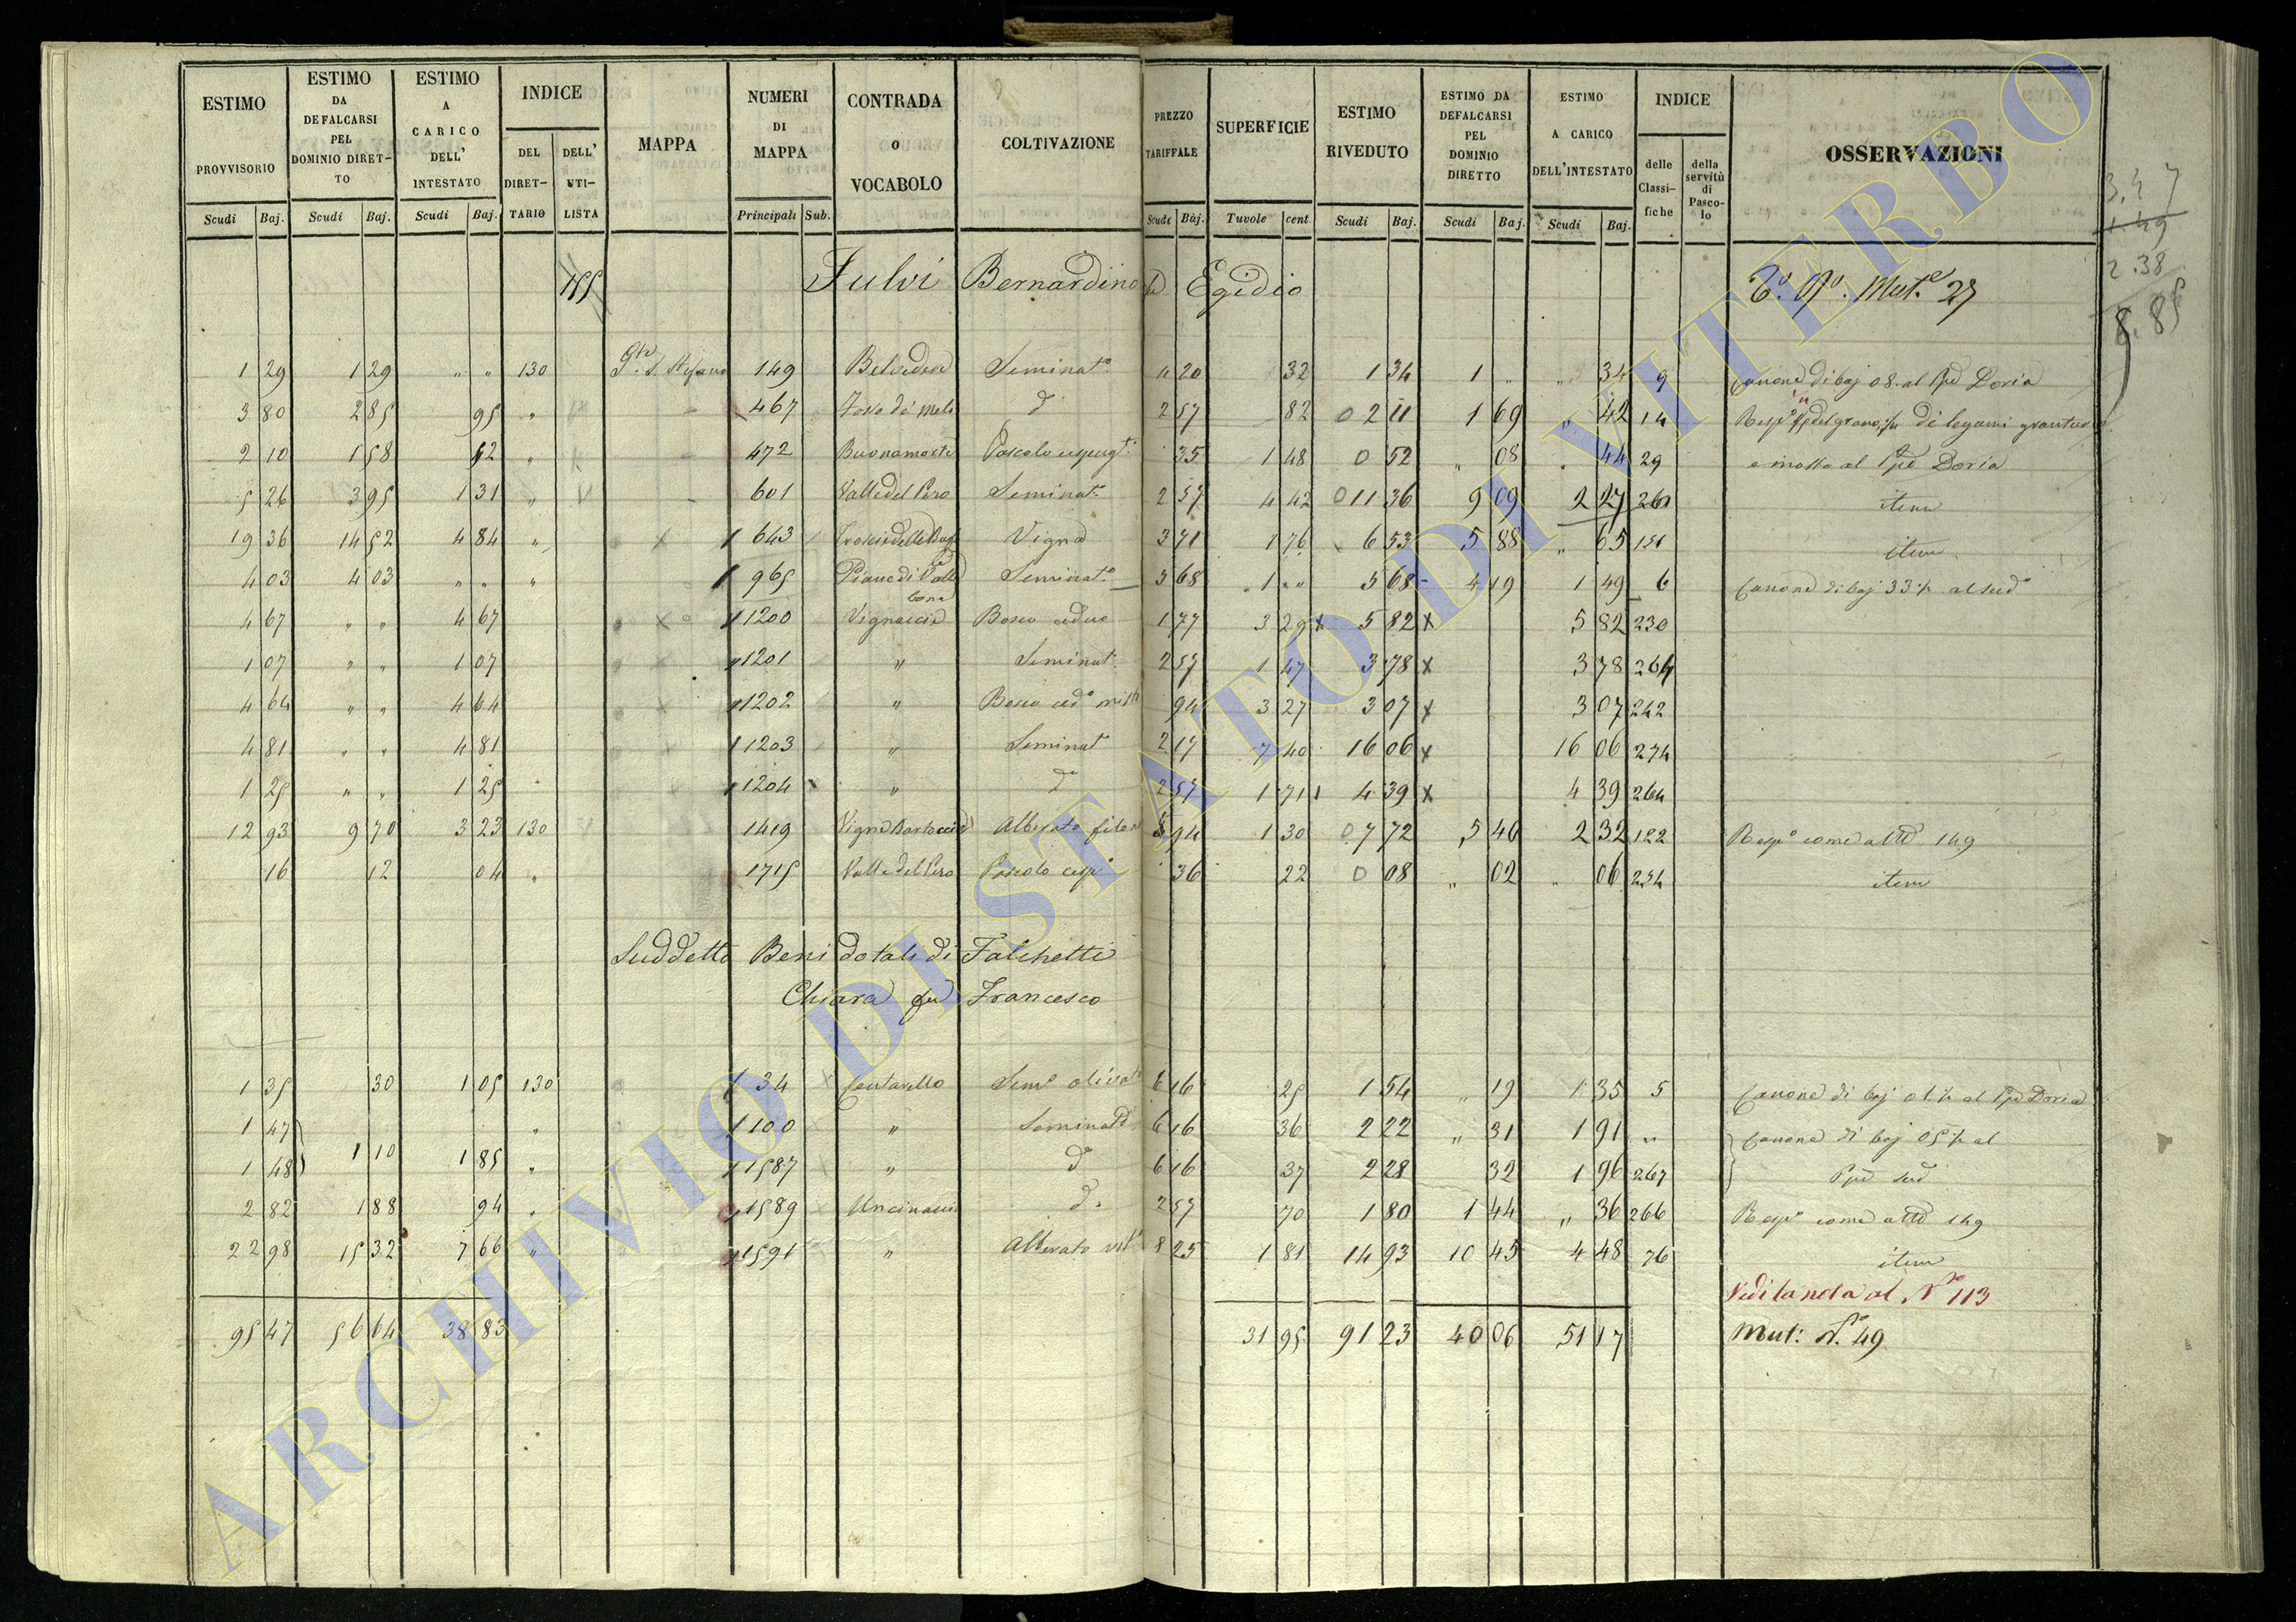 ESTIMO PROVVISORIO Scudi Baj. ESTIMO DA DEFALCARSI PEL DOMINIO DIRETTO Scudi Baj. ESTIMO A CARICO DELL' INTESTATO Scudi Baj. INDICE DEL DIRETTARIO DELL' UTILISTA MAPPA NUMERI DI MAPPA Principali Sub. CONTRADA O VOCABOLO COLTIVAZIONE PREZZO TARIFFALE Scudi Baj. SUPERFICIE Tavole cent. ESTIMO RIVEDUTO Scudi Baj. ESTIMO DA DEFALCARSI PEL DOMINIO DIRETTO Scudi Baj. ESTIMO A CARICO DELL'INTESTATO Scudi Baj. INDICE delle Classifiche della servitù di Pascolo OSSERVAZIONI
155 Fulvi Bernardino di Egidio Mut.e 27
1 29 1 29 " " 130 149 Belvedere Seminat.o 4 20 32 1 34 1 " " 34 9 Canone di baj 08 al Ppe Doria
3 80 2 85 95 " 467 d.o 2 57 82 0 2 11 1 69 " 42 14
2 10 1 58 52 " 472 Buonamorte Pascolo 35 1 48 0 52 " 08 " 44 29 al Ppe Doria
5 26 3 95 1 31 " 601 Valle del Pero Seminat.o 2 57 4 42 0 11 36 9 09 2 27 261 item
19 36 14 52 4 84 " 643 Vigna 3 71 1 76 6 53 5 88 " 65 151 item
4 03 4 03 " " " 965 Piane di Valle bona Seminat.o 5 68 1 " " 5 68 4 19 1 49 6 Canone di baj 33 ½ al sud.o
4 67 " " 4 67 1200 Vignaccia Bosco ceduo 1 77 3 29 5 82 5 82 230
1 07 " " 1 07 1201 " Seminat. 2 57 1 47 3 78 3 78 264
4 64 " " 4 64 1202 " Bosco ced.o misto 94 3 27 3 07 3 07 242
4 81 " " 4 81 1203 " Seminat 2 17 7 40 16 06 16 06 274
1 25 " " 1 25 1204 " d.o 2 57 1 71 4 39 4 39 264
12 93 9 70 3 23 130 1419 Vigna Bartoccio Alberato filon 5 94 1 30 0 7 72 5 46 2 32 122 Resp.o come al N.o 149
16 12 04 " 1715 Valle del Pero Pascolo cesp.o 36 22 0 08 " 02 " 06 234 item
Suddetto Beni dotali di Falchetti
Chiara fu Francesco
1 35 30 1 05 130 34 Centarello Sem.o olivat.o 6 16 25 1 54 " 19 1 35 5 Canone di baj 01 ½ al Ppe Doria
1 47 " 100 " Seminat.o 6 16 36 2 22 " 31 1 91 " Canone di baj 05 ½ al
1 48 1 10 1 85 " 1587 " d.o 6 16 37 2 28 32 1 96 267 Ppe sud
2 82 1 88 94 " 1589 Uncinacci d.o 2 57 70 1 80 1 44 " 36 266 Resp.o come al N.o 149
22 98 15 32 7 66 " 1591 " Alberato vit.o 8 25 1 81 14 93 10 45 4 48 76 item
Vedi la nota al N.o 113
95 47 56 64 38 83 31 95 91 23 40 06 51 17 Mut: N.o 49
1.49
2.38
8.85
ARCHIVIO DI STATO DI VITERBO